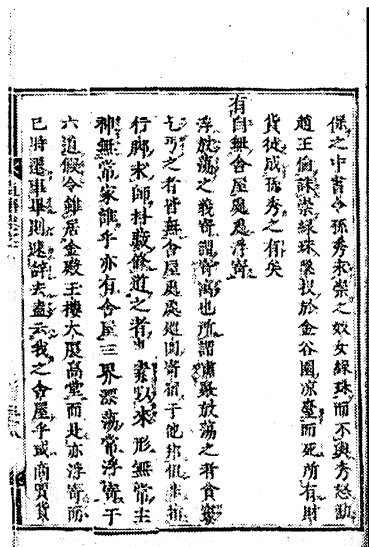 保之中書令孫秀求崇之妓女綠珠而不與秀怒勸
趙王倫誅崇綠珠墜投於金谷園涼臺而死所有財
貨徒成孫秀之有矣
有自無舍屋處處浮寄
浮放蕩之義寄謂寄寓也所謂 放蕩之者貪
乞丐之者皆無舍屋處處 門寄宿于他邦
行腳求師抖藪修道之者 以來形無常主
神無常家誰乎亦有舍屋三界漂蕩常浮寄于
六道假令雖居金殿玉樓大廈高堂而是亦浮寄而
已時運 畢則速 去盡云我之舍屋乎或商買貨